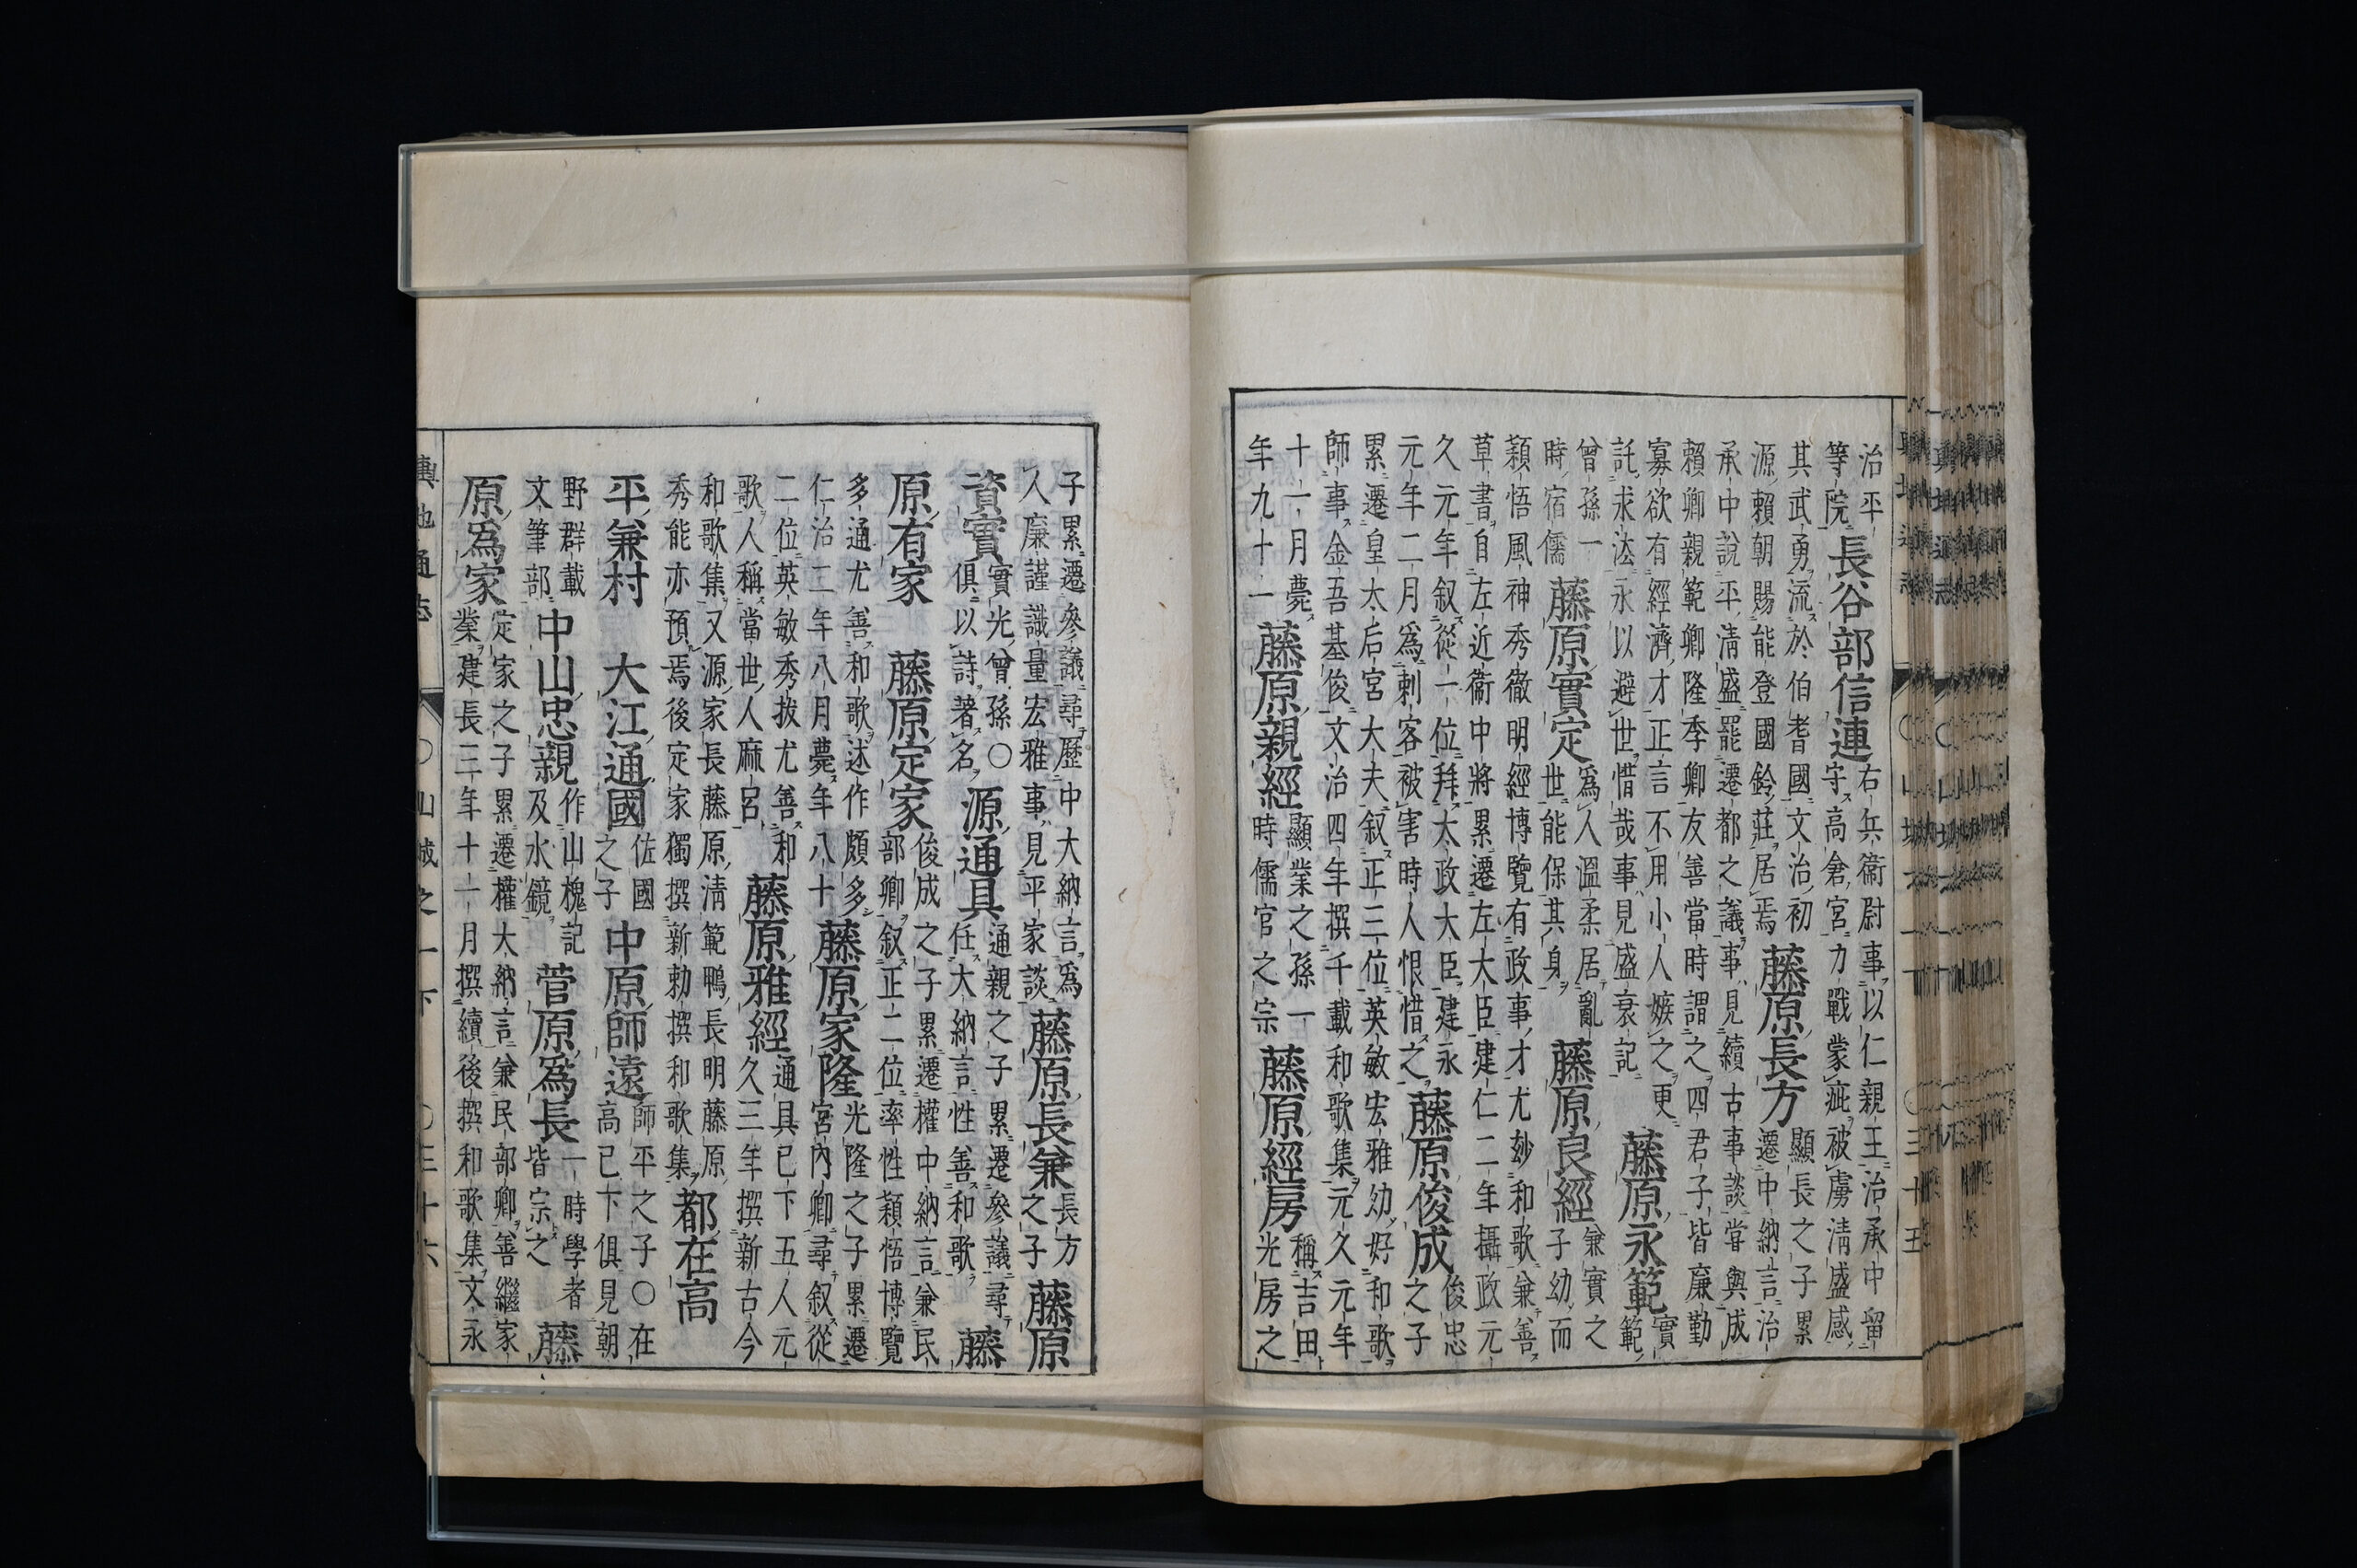 治平
等院
長谷部信連
右兵衛尉事以仁親王治承中留
守高倉宮力戰蒙疵被虜清盛感
其武勇流於伯耆國文治初
源賴朝賜能登國鈴莊居焉
藤原長方
顯長之子累
遷中納言治
承中說平清盛罷遷都之議事見續古事談甞與成
賴卿親範卿隆季卿友善當時謂之四君子皆廉勤
寡欲有經濟才正言不用小人嫉之更
託求法永以避世惜哉事見盛衰記
藤原永範
實
範
曾孫一
時宿儒
藤原實定
爲人溫柔居亂
世能保其身
藤原良經
兼實之
子幼而
穎悟風神秀徹明經博覽有政事才尤玅和歌兼善
草書自左近衛中將累遷左大臣建仁二年攝政元
久元年叙從一位拜太政大臣建永
元年二月爲刺客被害時人恨惜之
藤原俊成
俊忠
之子
累遷皇太后宮大夫叙正三位英敏宏雅幼好和歌
師事金吾基俊文治四年撰千載和歌集元久元年
十一月薨
年九十一
藤原親經
顯業之孫一
時儒官之宗
藤原經房
稱吉田
光房之
子累遷參議尋歷中大納言爲
人廉謹識量宏雅事見平家談
藤原長兼
長方
之子
藤原
資實
實光曾孫〇
俱以詩著名
源通具
通親之子累遷參議尋
任大納言性善和歌
藤
原有家
藤原定家
俊成之子累遷權中納言兼民
部卿叙正二位率性穎悟博覽
多通尤善和歌述作頗多
仁治二年八月薨年八十
藤原家隆
光隆之子累遷
宮內卿尋叙從
二位英敏秀拔尤善和
歌人稱當世人麻呂
藤原雅經
通具已下五人元
久三年撰新古今
和歌集又源家長藤原清範鴨長明藤原
秀能亦預焉後定家獨撰新勅撰和歌集
都在高
平兼村
大江通國
佐國
之子
中原師遠
師平之子〇在
高已下俱見朝
野群載
文筆部
中山忠親
作山槐記
及水鏡
菅原爲長
一時學者
皆宗之
藤
原爲家
定家之子累遷權大納言兼民部卿善繼家
業建長三年十一月撰續後撰和歌集文永
輿地通志 〇山城之一下 〇三十六